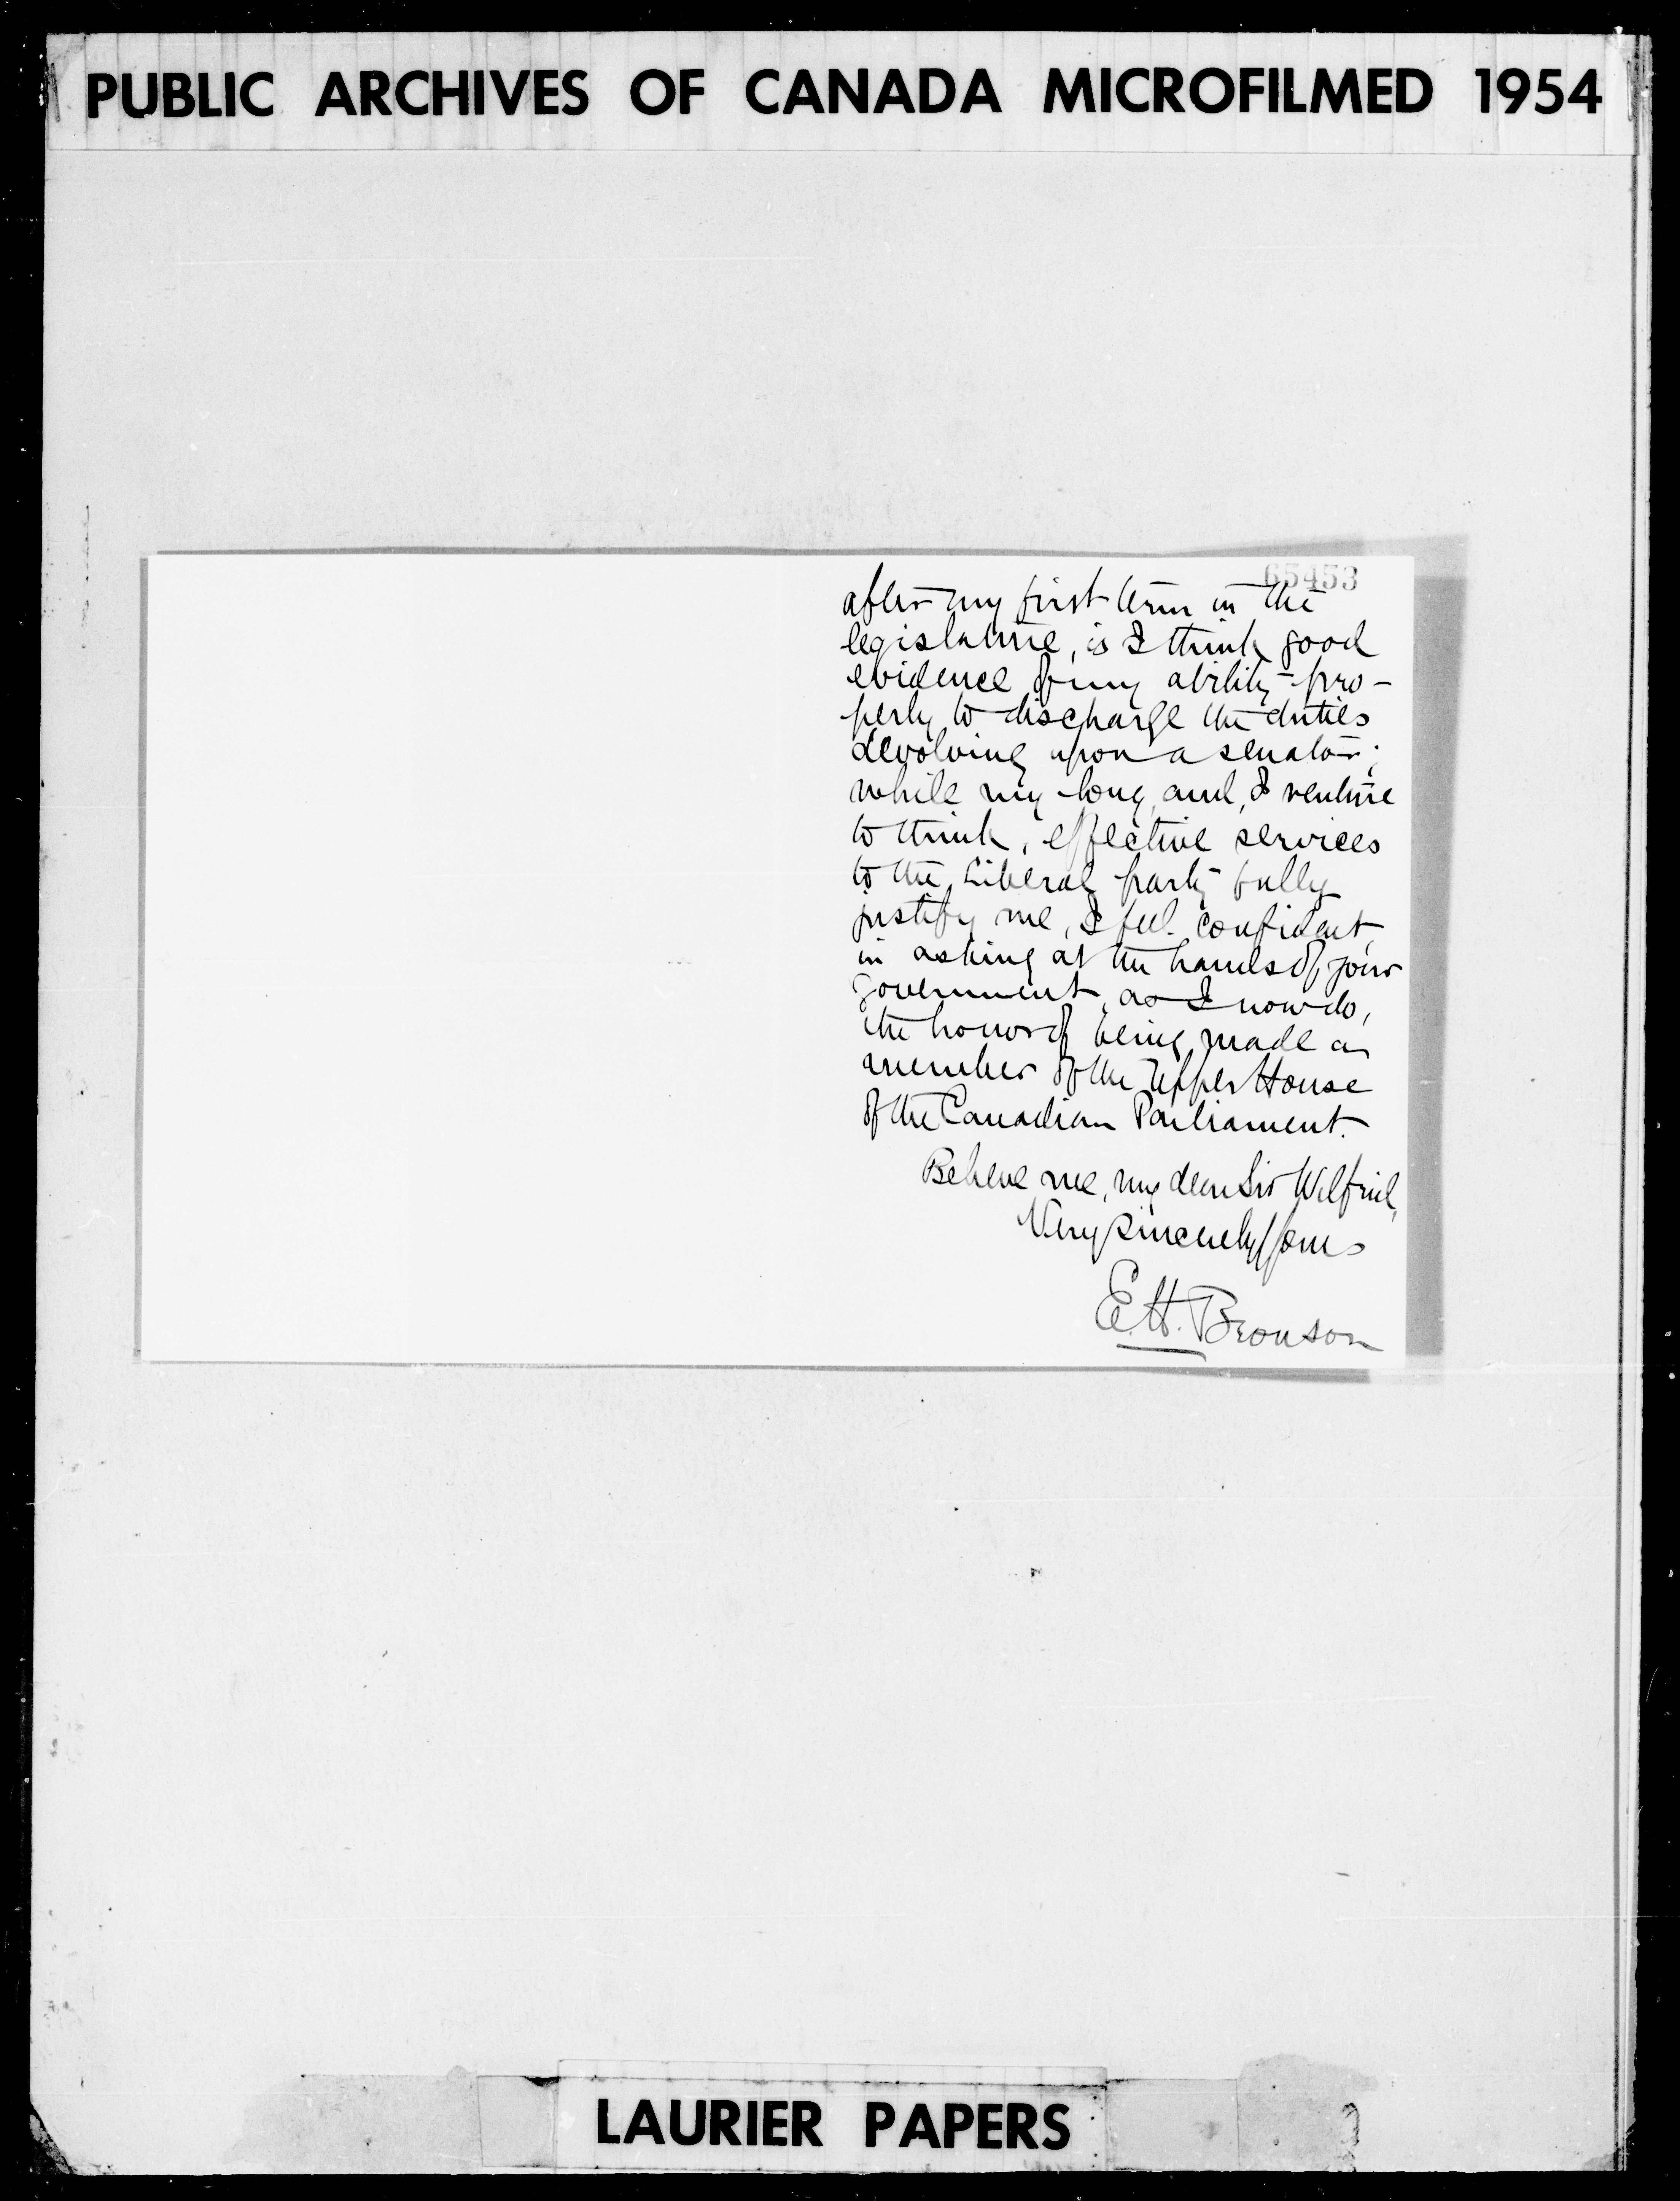 PUBLIC ARCHIVES OF CANADA MICROFILMED 1954
65453
after my first term in the
legislature, is I think good
evidence of my ability pro-
perly to discharge the duties
devolving upon a senator;
while my long and, I venture
to think, effective services
to the Liberal party fully
justify me, I feel confident,
in asking at the hands of your
government, as I now do,
the honor of being made a
member of the Upper House
of the Canadian Parliament.
Believe me, my dear Sir Wilfrid,
Very sincerely yours
E.H. Bronson
LAURIER PAPERS